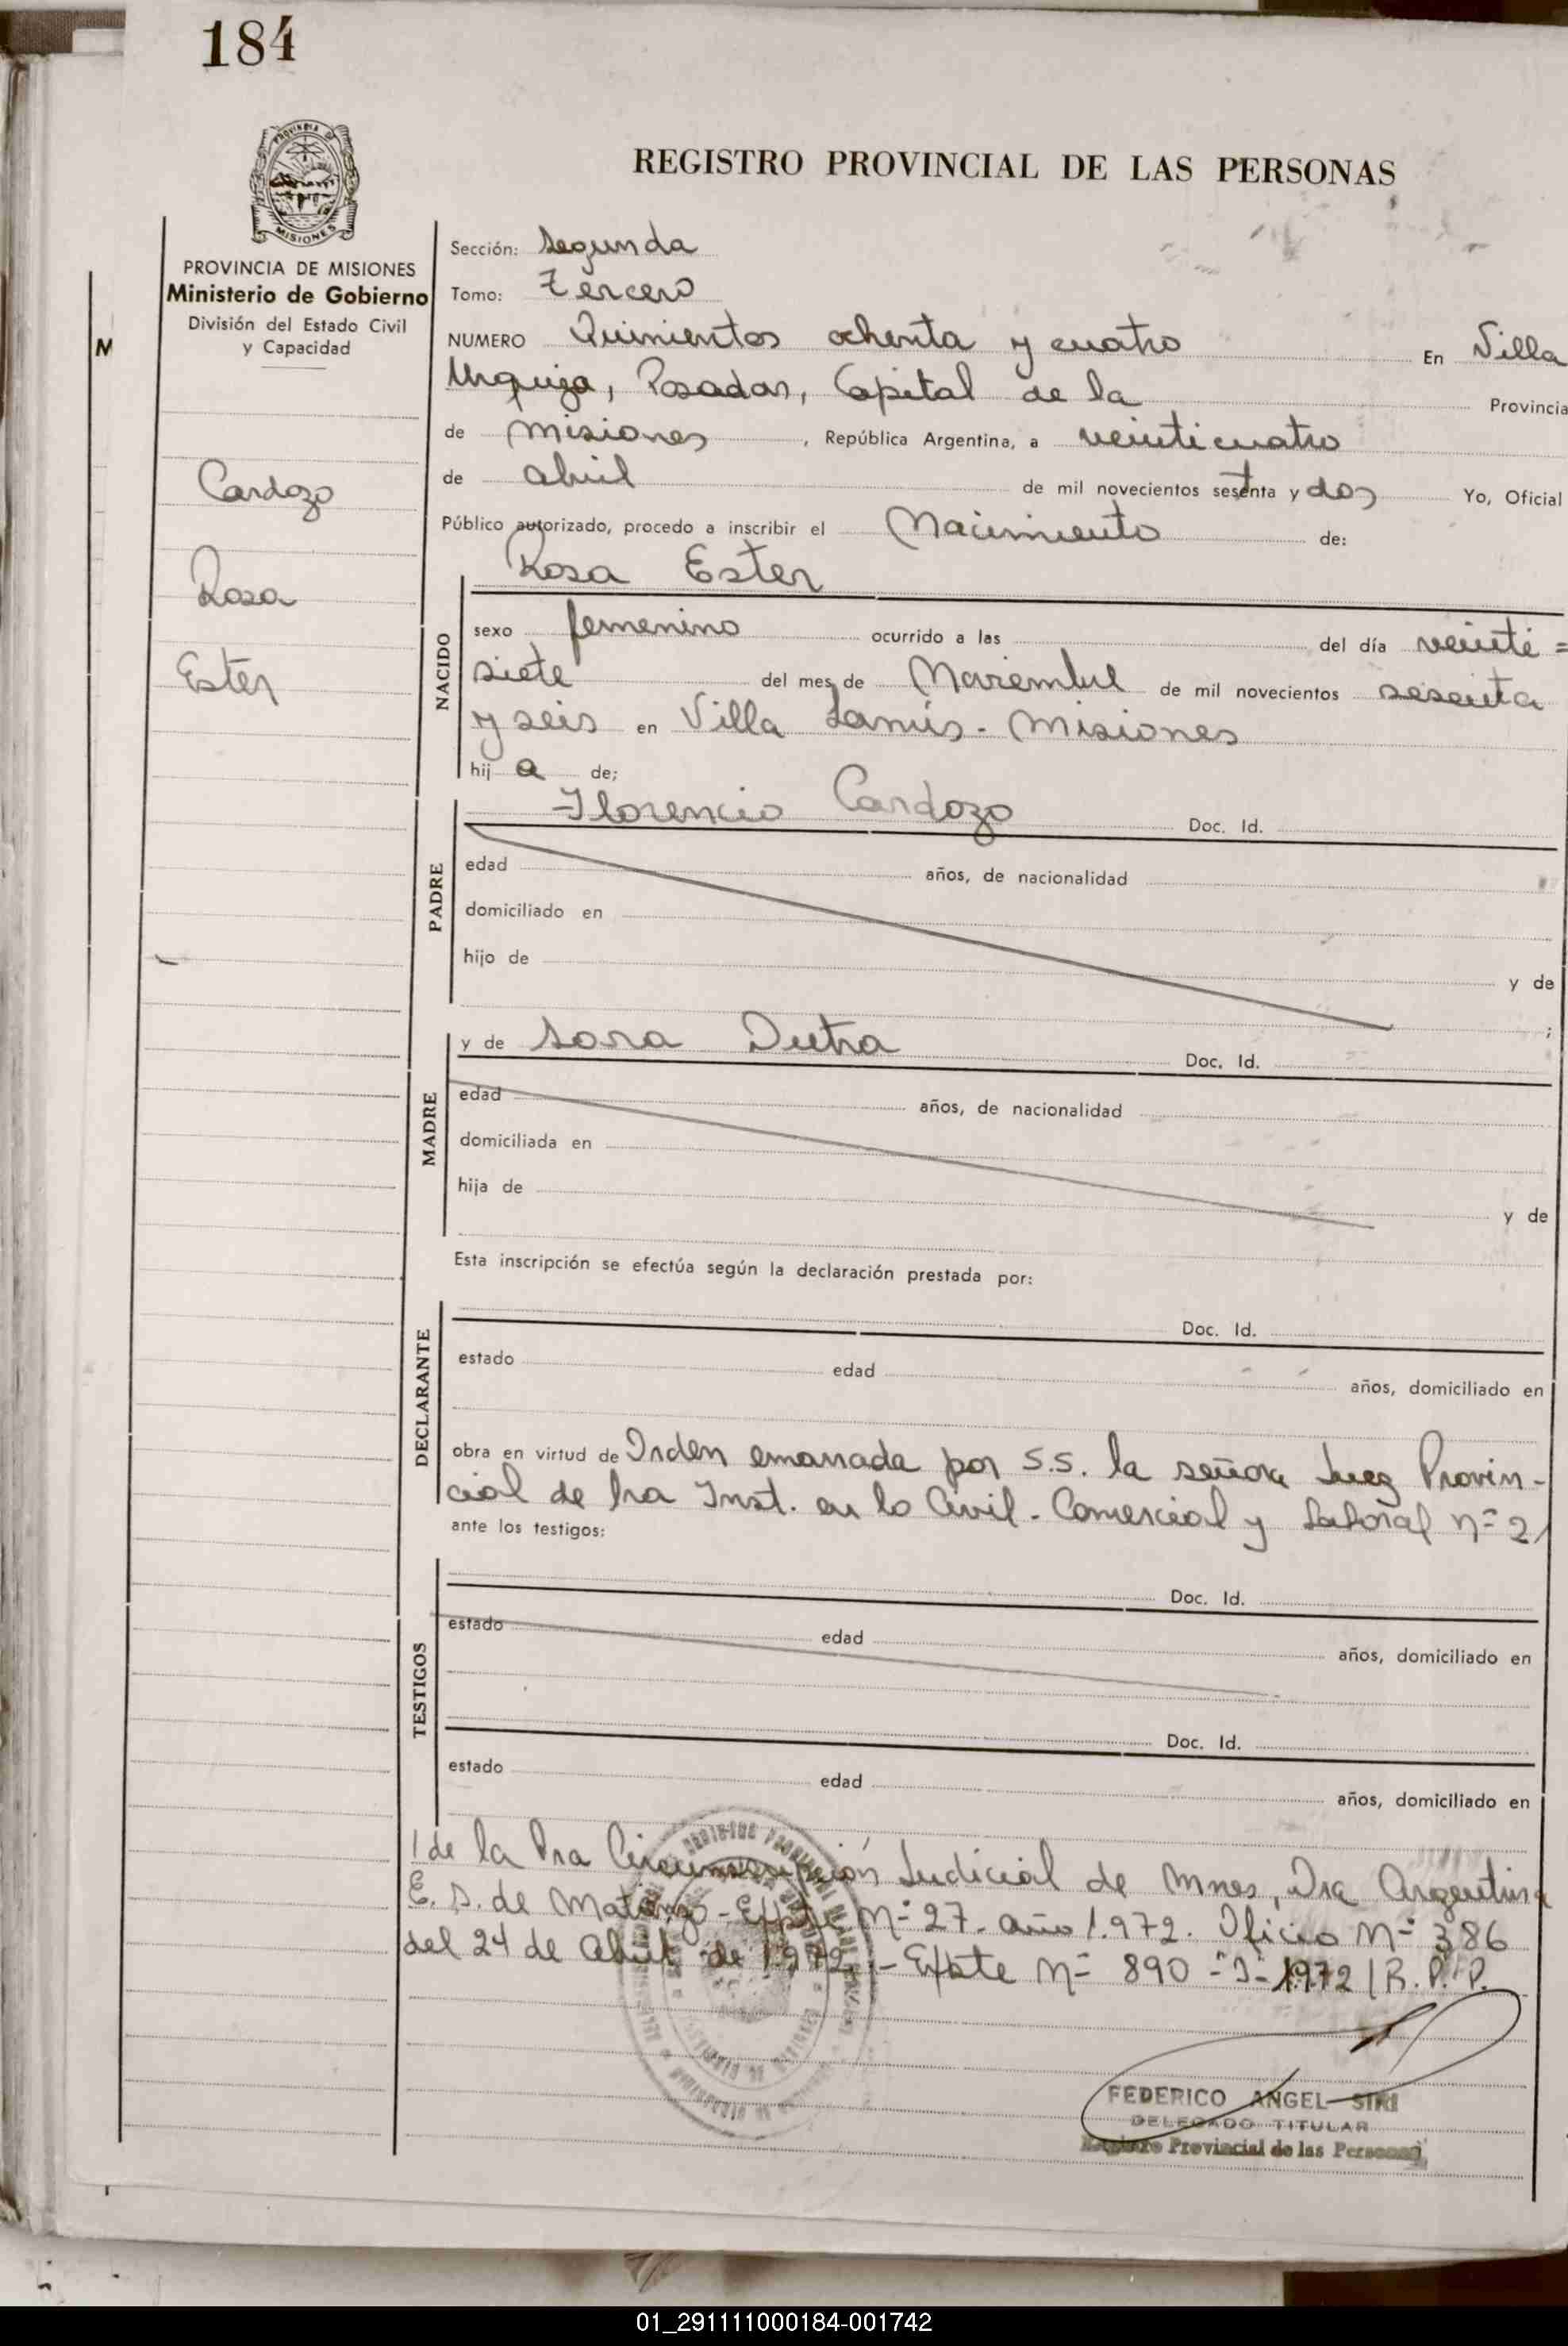 184
PROVINCIA DE
MISIONES
PROVINCIA DE MISIONES
Ministerio de Gobierno
División del Estado Civil
y Capacidad
M
Cardozo
Rosa
Ester
REGISTRO PROVINCIAL DE LAS PERSONAS
Sección: Segunda
Tomo: Tercero
NUMERO Quinientos ochenta y cuatro En Villa
Urquiza, Posadas, Capital de la Provincia
de Misiones, República Argentina, a veinticuatro
de abril de mil novecientos setenta y dos Yo, Oficial
Público autorizado, procedo a inscribir el Nacimiento de:
Rosa Ester
NACIDO
sexo femenino ocurrido a las del día veinti=
siete del mes de Noviembre de mil novecientos sesenta
y seis en Villa Lanús - Misiones
hij a de;
PADRE
Florencio Cardozo Doc. Id.
edad años, de nacionalidad
domiciliado en
hijo de y de
;
MADRE
y de Sona Dutra Doc. Id.
edad años, de nacionalidad
domiciliada en
hija de y de
Esta inscripción se efectúa según la declaración prestada por:
DECLARANTE
Doc. Id.
estado edad años, domiciliado en
obra en virtud de Orden emanada por S.S. la señora Juez Provin-
cial de 1ra Inst. en lo Civil - Comercial y Laboral nº 2/
ante los testigos:
TESTIGOS
Doc. Id.
estado edad años, domiciliado en
Doc. Id.
estado edad años, domiciliado en
/de la 1ra Circunscripción Judicial de Mnes, Dra Argentina
E. S. de - Expte Nº 27 - año 1.972. Oficio Nº 386
del 24 de Abril de 1972. - Expte Nº 890 - 1972/R.P.P.
FEDERICO ANGEL SIRI
DELEGADO TITULAR
Registro Provincial de las Personas
01_291111000184-001742